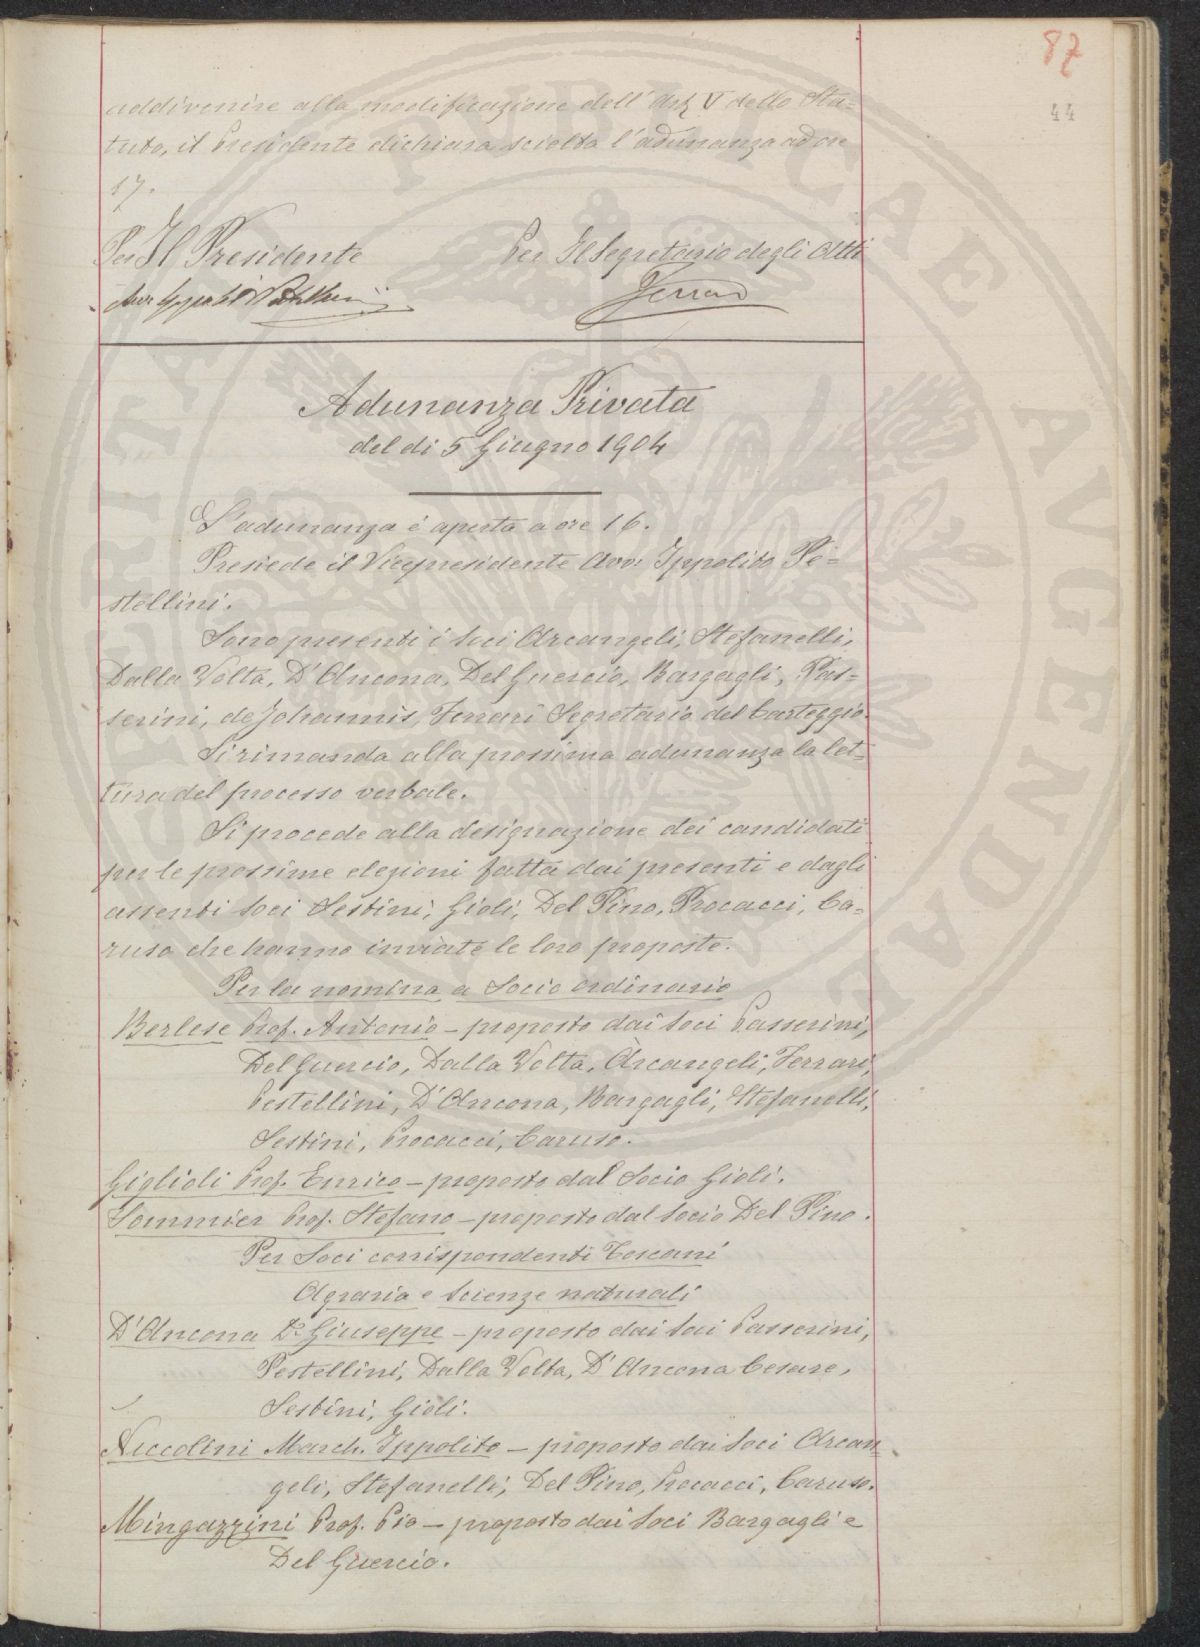 87
44
addivenire alla modificazione dell'Art V dello Sta=
tuto, il Presidente dichiara sciolta l'adunanza ad ore
17.
Per Il Presidente
Per Il Segretario degli Atti
Ferrari
Adunanza Privata
del di 5 Giugno 1904
L'adunanza è aperta a ore 16.
Presiede il Vicepresidente Avv. Ippolito Pe=
stellini.
Sono presenti i Soci Arcangeli, Stefanelli,
Dalla Volta, D'Ancona, Del Guercio, Bargagli, Pas=
serini, de Johannis, Ferrari Segretario del Carteggio.
Si rimanda alla prossima adunanza la let=
tura del processo verbale.
Si procede alla designazione dei candidati
per le prossime elezioni fatta dai presenti e dagli
assenti Soci Sestini, Gioli, Del Pino, Procacci, Ca=
ruso che hanno inviate le loro proposte.
Per la nomina a Socio ordinario
Berlese Prof. Antonio - proposto dai Soci Passerini,
Del Guercio, Dalla Volta, Arcangeli, Ferrari,
Pestellini, D'Ancona, Bargagli, Stefanelli,
Sestini, Procacci, Caruso.
Giglioli Prof. Enrico - proposto dal Socio Gioli.
Sommier Prof. Stefano - proposto dal Socio Del Pino.
Per Soci corrispondenti Toscani
Agraria e Scienze naturali
D'Ancona Dr Giuseppe - proposto dai Soci Passerini,
Pestellini, Dalla Volta, D'Ancona Cesare,
Sestini, Gioli.
Niccolini March. Ippolito - proposto dai Soci Arcan
geli, Stefanelli, Del Pino, Procacci, Caruso.
Mingazzini Prof. Pio - proposto dai Soci Bargagli e
Del Guercio.